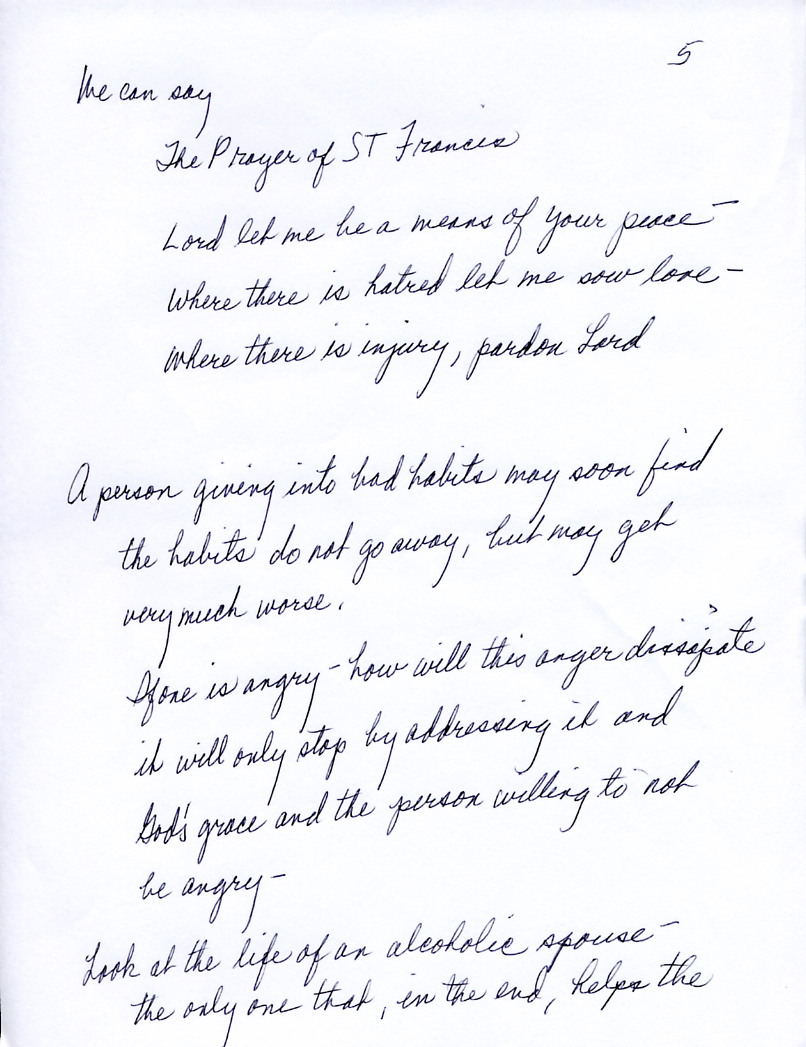 5
We can say
The Prayer of ST Francis
Lord let me be a means of your peace –
where there is hatred let me sow love –
where there is injury, pardon Lord
A person giving into bad habits may soon find
the habits do not go away, but may get
very much worse.
If one is angry – how will this anger dissipate
it will only stop by addressing it and
God's grace and the person willing to not
be angry –
Look at the life of an alcoholic spouse –
the only one that, in the end, helps the